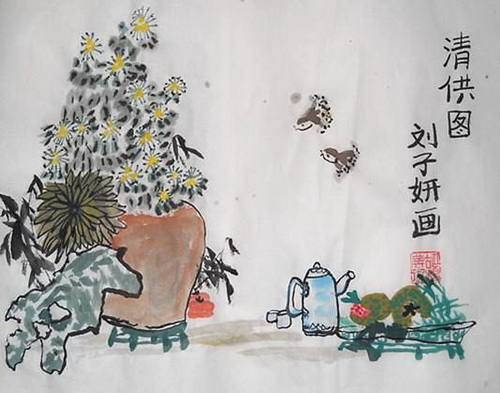 清供图
刘子妍画